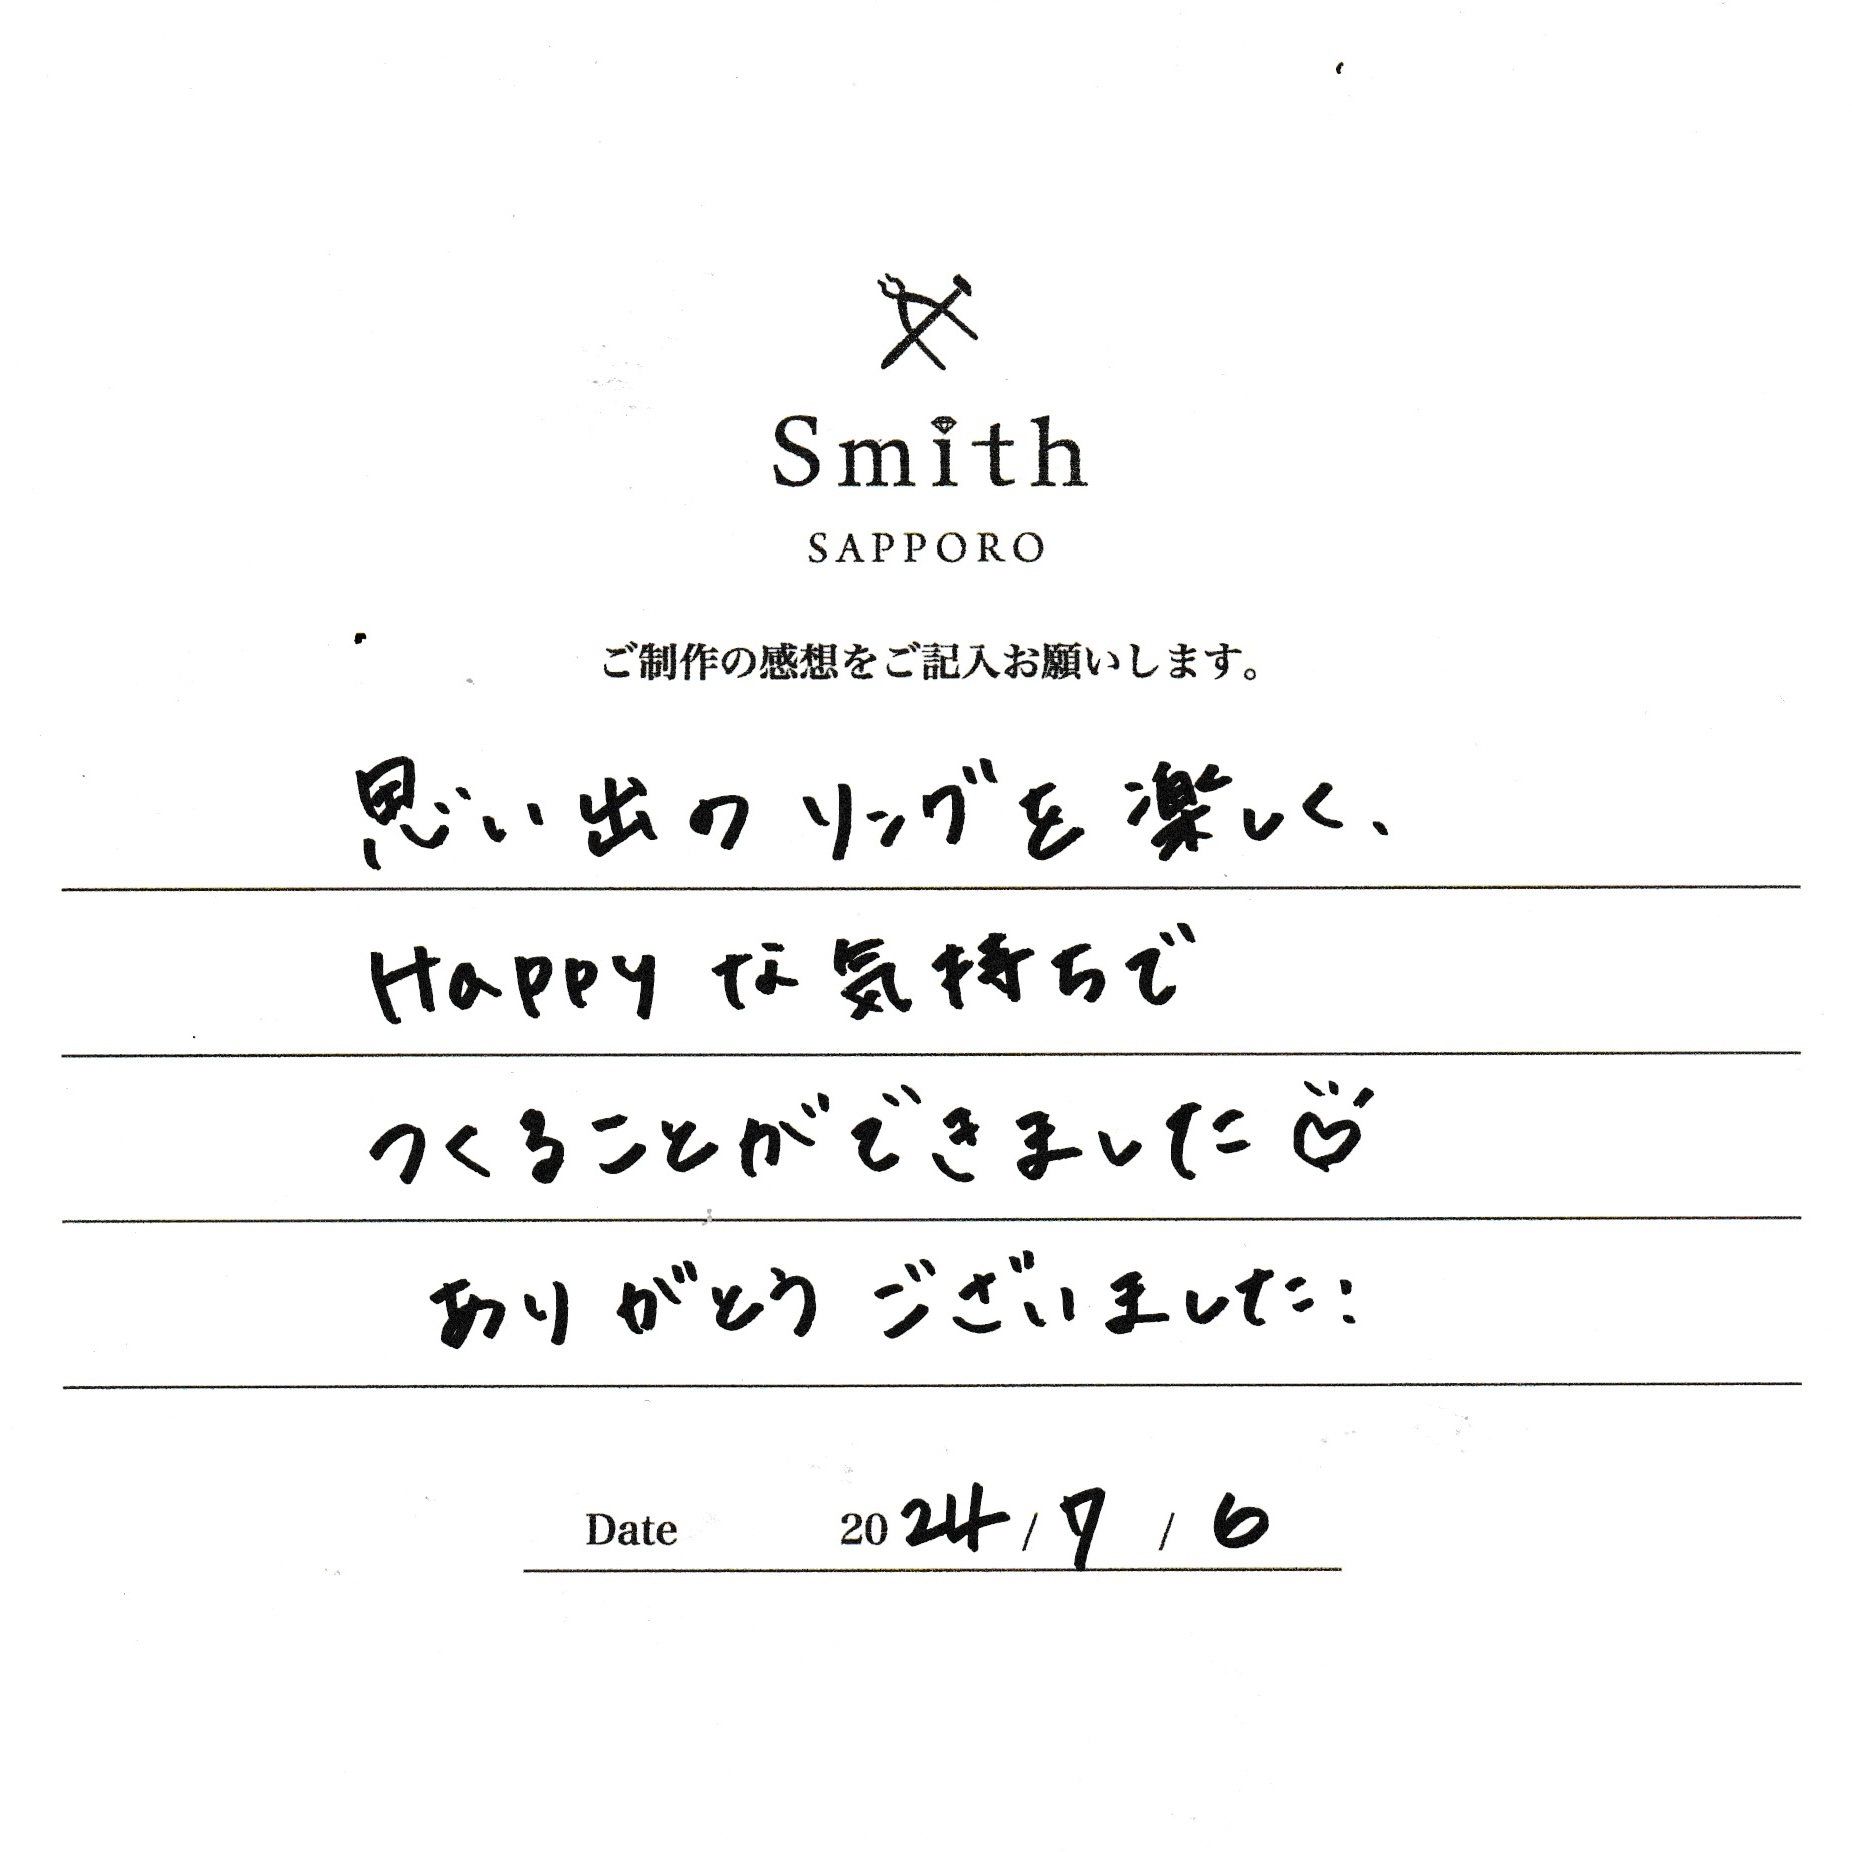 Smith
SAPPORO
ご制作の感想をご記入お願いします。
思い出のリングを楽しく、
Happyな気持ちで
つくることができました♡
ありがとうございました:
Date 2024/7/6